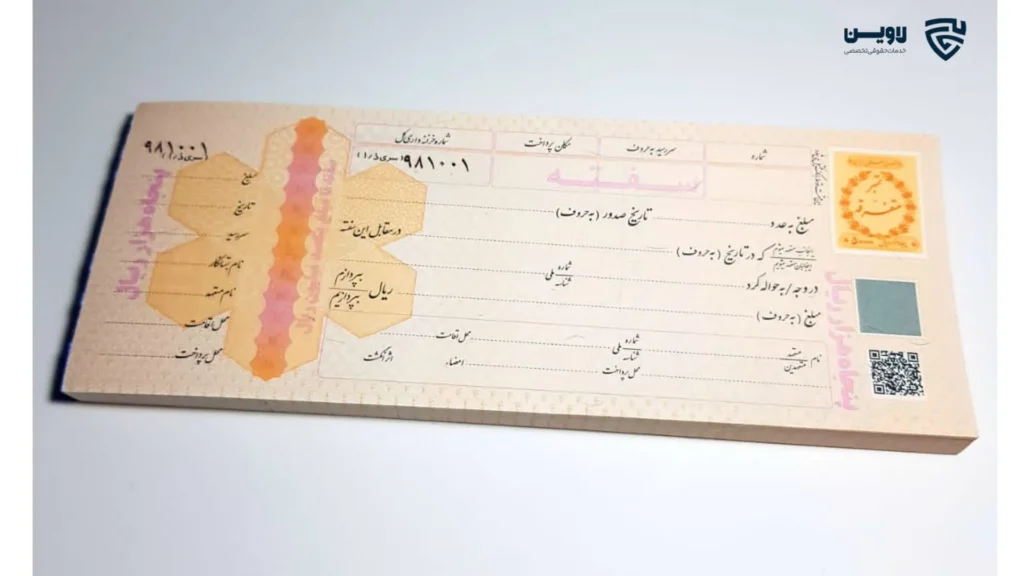 لاوین
خدمات حقوقی تخصصی
شماره
سررسید به حروف
مکان پرداخت
شماره خزانه داری کل
۹۸۱۰۰۱ (سری ذ/۱)
سفته
مبلغ به عدد
تاریخ صدور (به حروف)
در مقابل این سفته
اینجانب متعهد میشوم
اینجانبان متعهد میشویم
که در تاریخ (به حروف)
در وجه / به حواله کرد
شماره
شناسه
ملی
مبلغ (به حروف)
ریال
بپردازم
بپردازیم
نام
متعهد
متعهدین
شماره
شناسه
ملی
محل اقامت
محل پرداخت
امضاء
اثر انگشت
۹۸۱۰۰۱
(سری ذ/۱)
مبلغ
تاریخ
سررسید
نام بستانکار
نام متعهد
محل اقامت
محل پرداخت
پنجاه هزار ریال
پنجاه هزار ریال
تمبر
سفته